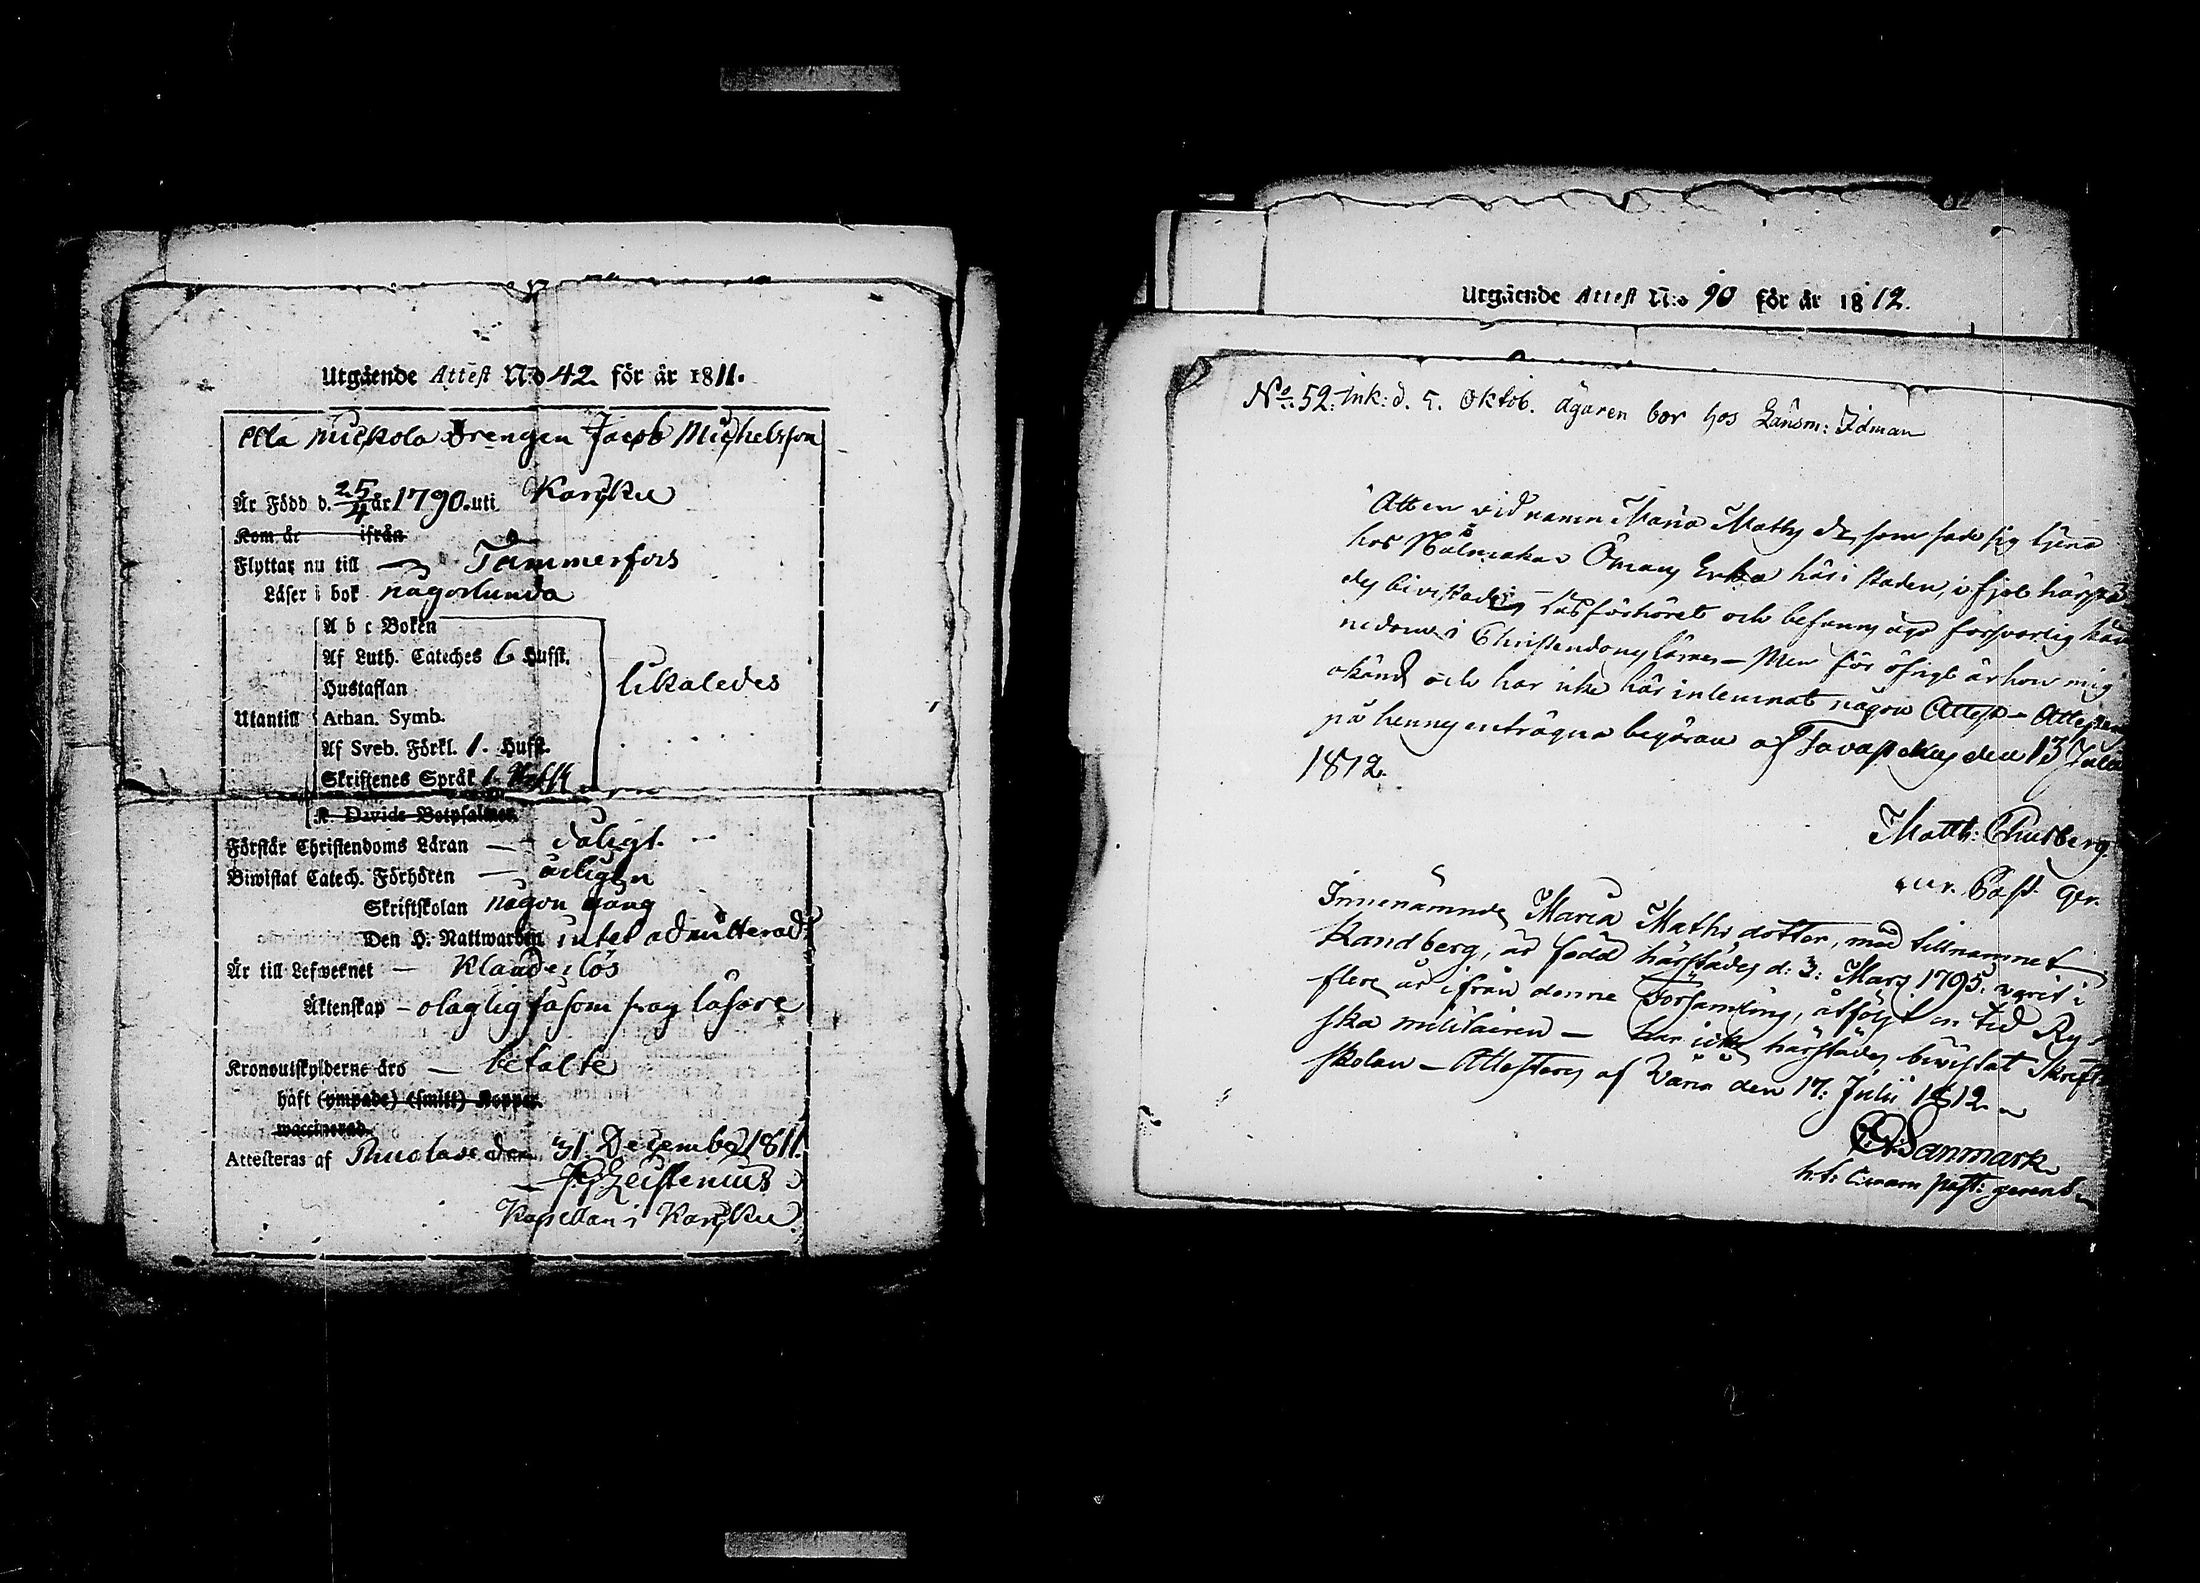 Utgående Attest N:o 42. för år 1811.
Drengen Jacob Michelsson
Är Född d. 25/4 år 1790. uti Karkku
Kom år ifrån
Flyttar nu till — Tammerfors
Läser i bok någorlunda
A b c Boken
Af Luth. Cateches 6 Hufst.
Hustaflan
likaledes
Utantill Athan. Symb.
Af Sveb. Förkl. 1. Hufst.
Skriftenes Språk 1.
K. Davids Botpsalmer.
Förstår Christendoms Läran — daligt.
Biwistat Catech. Förhören — årligen
Skriftskolan någon gång
Den H. Nattwarden intet admitterad
Är till Lefvernet — Klanderlös
Äktenskap — olaglig såsom swag läsare
Kronoutskylderne äro — betalte
haft (ympade) (smitt) Koppor.
waccinerad.
Attesteras af den 31 December 1811.
Kapellan i Karkku.
Utgående Attest N:o 90 för år 1812.
No. 52. Ink: d. 5. Oktob. ägaren bor hos Länsm: Idman
Att en vid namn Maria Maths dr, som sade sig tjena
hos Målmakar Ömans Enka här i staden, i fjol härstä
des bivistade Läsförhöret och befanns äga försvarlig kän
nedom i Christendoms läran — Men för öfrigt är hon mig
okänd och har icke här inlemnat någon Attest — Attesteras
på hennes enträgna begäran af Tavastehus den 13 Julii
1812.
Matth: Thusberg.
Past. ger.
Innenämnde Maria Mathsdotter, med tillnamnet
Randberg, är född härstädes d: 3: Mars 1795. varit i
flere år ifrån denne Församling, åtföljt en tid Ry-
ska militairen — har icke härstädes bivistat Skrift-
skolan — Attesteras af Vånå den 17: Julii 1812.
Sanmark
h. t: past: gerens